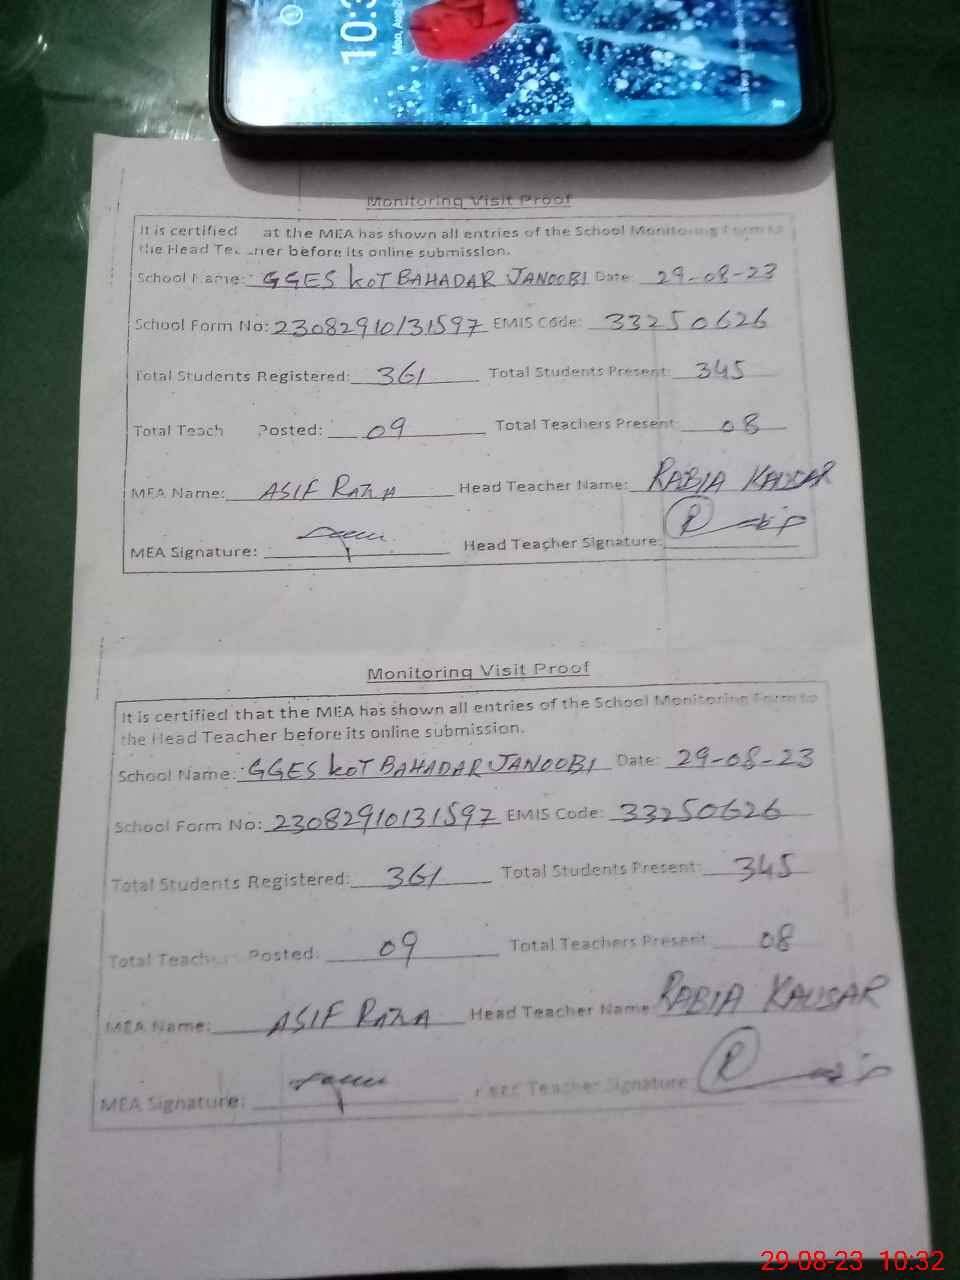 10:3
Mon, Aug 2
Monitoring Visit Proof
It is certified at the MEA has shown all entries of the School Monitoring Form to
the Head Te ner before its online submission.
School Name: GGES KOT BAHADAR JANOOBI Date: 29-08-23
School Form No: 23082910131597 EMIS Code: 33250626
Total Students Registered: 361 Total Students Present: 345
Total Teach Posted: 09 Total Teachers Present: 08
MEA Name: ASIF RAZA Head Teacher Name: RABIA KAUSAR
MEA Signature: Head Teacher Signature:
Monitoring Visit Proof
It is certified that the MEA has shown all entries of the School Monitoring Form to
the Head Teacher before its online submission.
School Name: GGES KOT BAHADAR JANOOBI Date: 29-08-23
School Form No: 23082910131597 EMIS Code: 33250626
Total Students Registered: 361 Total Students Present: 345
Total Teach Posted: 09 Total Teachers Present: 08
MEA Name: ASIF RAZA Head Teacher Name: RABIA KAUSAR
MEA Signature: Teacher Signature:
29-08-23 10:32